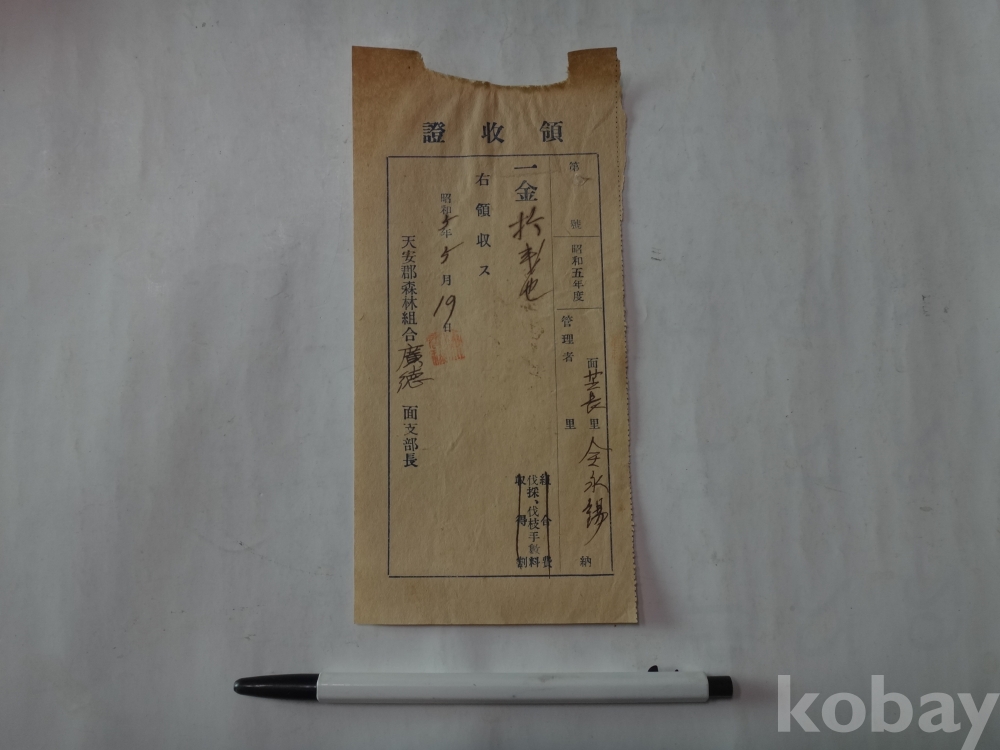 領收證
第 號 昭和五年度
面 長里 金永錫 納
管理者 里
一金拾 也
組合費
伐採、伐枝手數料
取得割
右領収ス
昭和5年5月19日
天安郡森林組合廣德面支部長
kobay